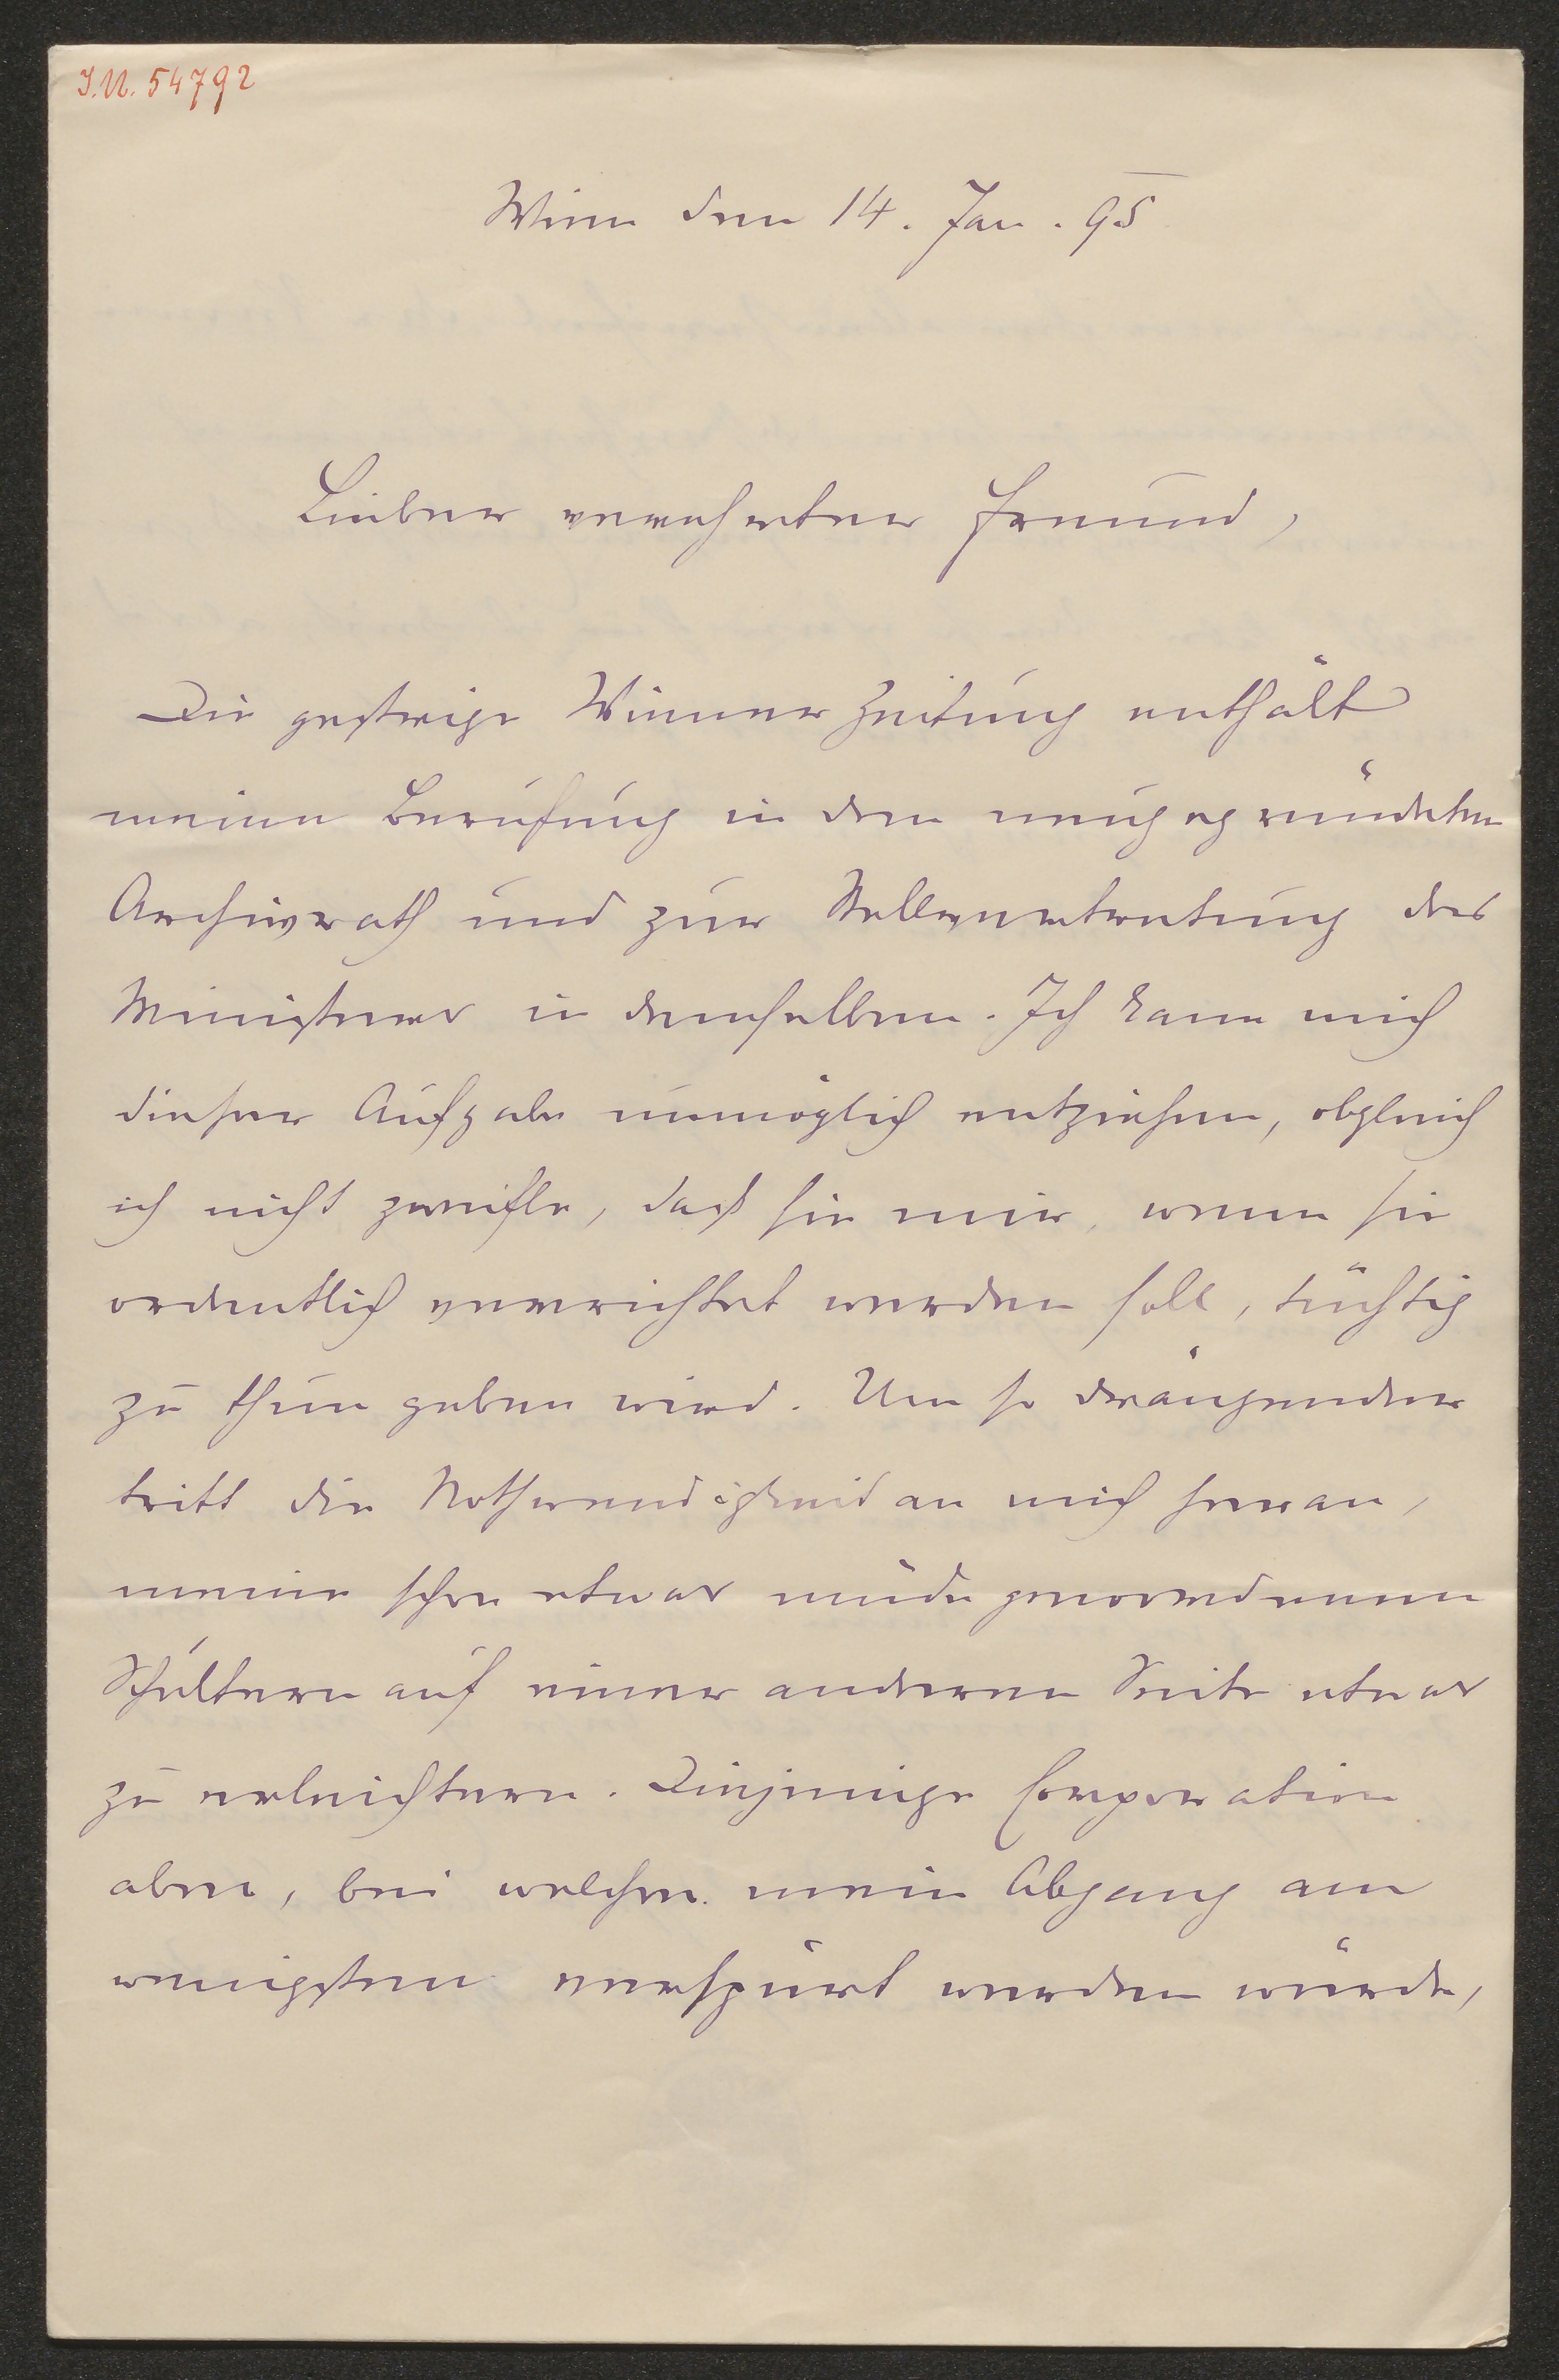 I.N. 54792
Wien den 14. Jan. 95
Lieber verehrter Freund,
Die gestrige Wiener Zeitung enthält
meine Berufung in den neugegründeten
Archivrath und zur Stellvertretung des
Ministers in demselben. Ich kann mich
dieser Aufgabe unmöglich entziehen, obgleich
ich nicht zweifle, daß sie mir, wenn sie
ordentlich verrichtet werden soll, tüchtig
zu thun geben wird. Um so drängender
tritt die Nothwendigkeit an mich heran,
meine schon etwas müde gewordenen
Schultern auf einer anderen Seite etwas
zu erleichtern. Diejenige Corporation
aber, bei welcher mein Abgang am
wenigsten verspürt werden würde,